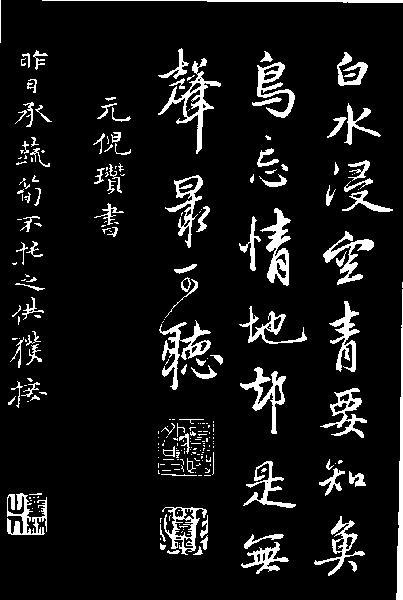 白水浸空青要知魚
鳥忘情地却是無
聲最可聽
元倪瓚書
昨日承蔬筍不托之供獲接